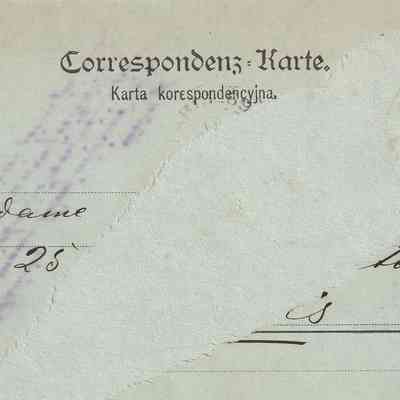 Correspondenz-Karte.
Karta korespondencyjna.
dame
25
is